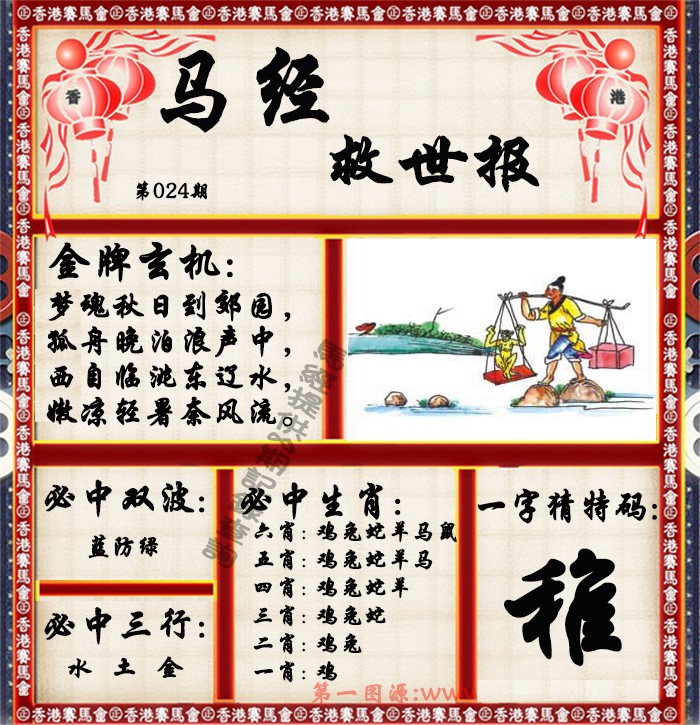 香港賽馬會㊣香港賽馬會㊣香港賽馬會㊣香港賽馬會㊣香港賽馬會㊣香港賽馬會
香
港
马经
救世报
第024期
金牌玄机：
梦魂秋日到郊园，
孤舟晚泊浪声中，
西自临洮东辽水，
嫩凉轻暑奈风流。
必中双波：
蓝防绿
必中三行：
水 土 金
必中生肖：
六肖：鸡兔蛇羊马鼠
五肖：鸡兔蛇羊马
四肖：鸡兔蛇羊
三肖：鸡兔蛇
二肖：鸡兔
一肖：鸡
一字猜特码：
稚
第一图源:www.